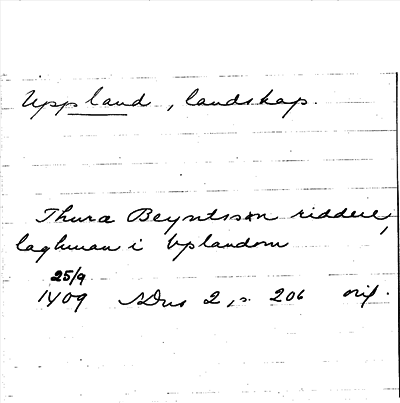 Uppland, landskap.
Thura Beyntsson riddere,
laghman i Vplandom
25/9
1409 SDns 2, s. 206 orig.